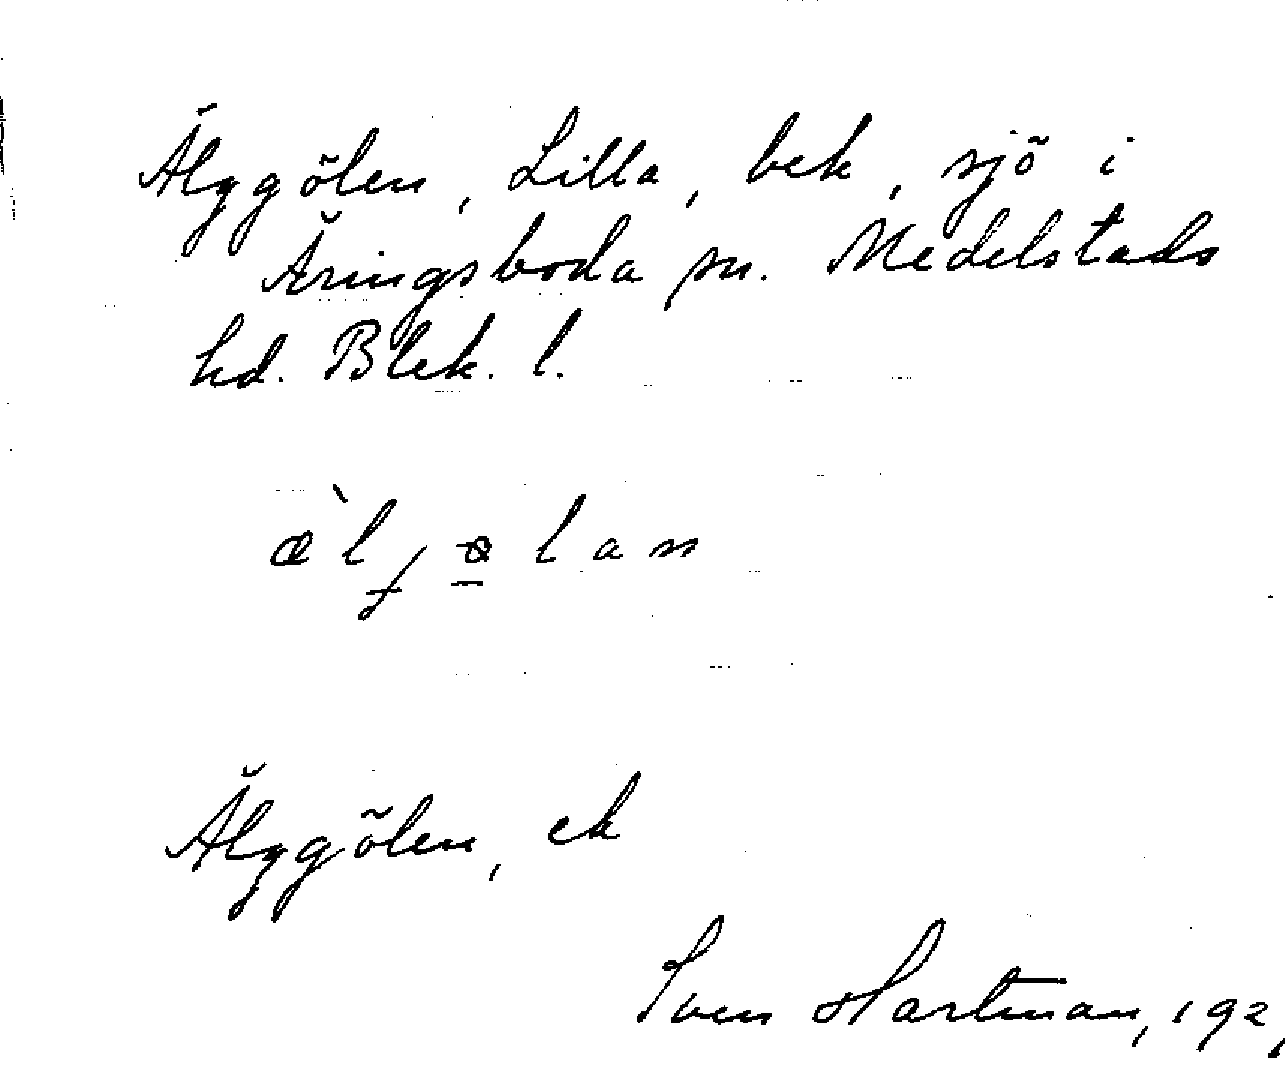 Älggölen, Lilla, bek, sjö i
Åringsboda sn. Medelstads
hd. Blek. l.
Älggölen, ek
Sven Hartman, 192